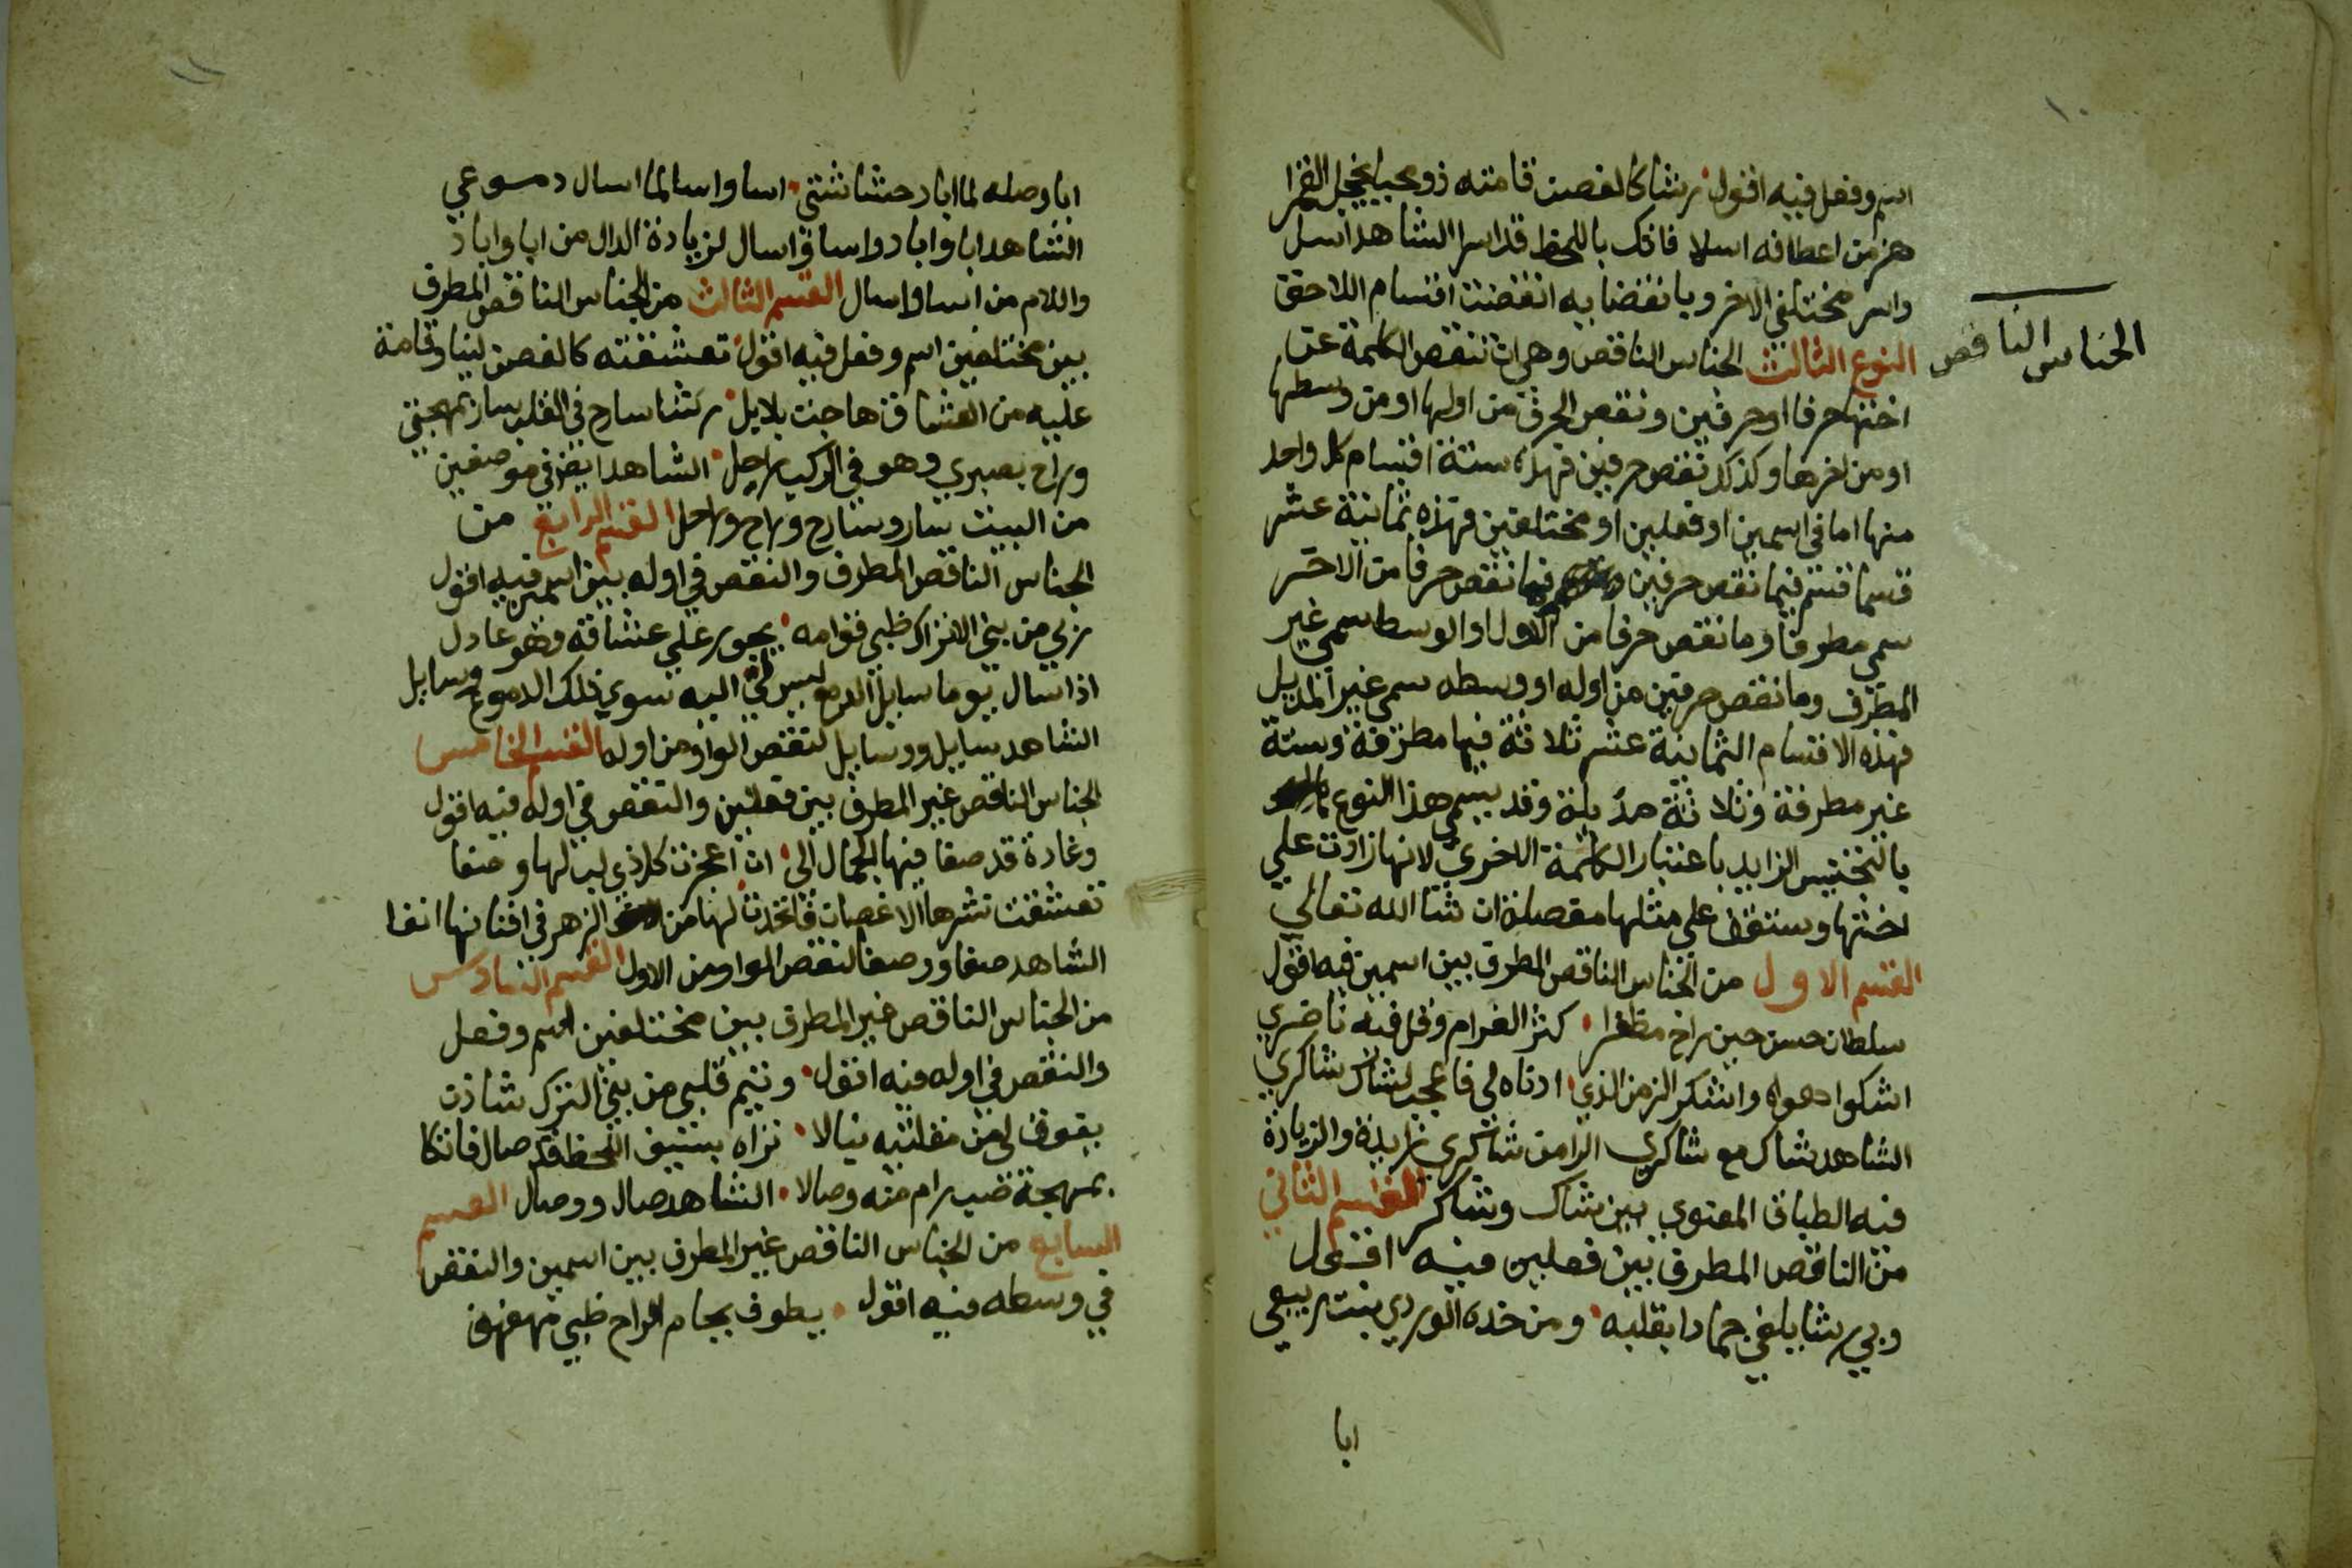 ١٠
اسم وفعل فيه اقول رشا كالغصن قامته ذو محيا يخجل القمرا
هز من اعطافه اسلا فاتك باللحظ قد اسرا الشاهد اسل
واسر مختلفي الاخر وبانقضايه انقضت اقسام اللاحق
الجناس الناقص
النوع الثالث الجناس الناقص وهي ان تنقص الكلمة عن
اختها حرفا او حرفين ونقص الحرف من اولها او من وسطها
او من اخرها وكذلك نقص حرفين فهذه ستة اقسام كل واحد
منها اما في اسمين او فعلين او مختلفين فهذه ثمانية عشر
قسما قسم فيما نقص حرفين فيما نقص حرفا من الاخر
سمي مطرفا وما نقص حرفا من الاول او الوسط سمي غير
المطرف وما نقص حرفين من اوله او وسطه سمي غير المذيل
فهذه الاقسام الثمانية عشر ثلاثة فيها مطرفة وستة
غير مطرفة وثلاثة مذيلة وقد يسمي هذا النوع
بالتجنيس الزايد باعتبار الكلمة الاخري لانها زادت علي
اختها وستقف علي مثلها مفصلة ان شا الله تعالي
القسم الاول من الجناس الناقص المطرف بين اسمين فيه اقول
سلطان حسن حين راح مظفرا كثر الغرام وقل فيه ناصري
اشكوا هواه واشكر الزمن الذي ادناه لي فاعجب لشاك شاكري
الشاهد شاك مع شاكري الرا من شاكري زايدة والزيادة
فيه الطباق المعنوي بين شاك وشاكر القسم الثاني
من الناقص المطرف بين فعلين فيه اقول
وبي رشا يلفي جمادا بقلبه ومن خده الوردي بنت ربيعي
ابا
١١
ابا وصله لما اباد حشاشتي اسا واسا لما اسال دموعي
الشاهد ابا واباد واسا واسال لزيادة الدال من ابا واباد
واللام من اسا واسال القسم الثالث من الجناس الناقص المطرف
بين مختلفين اسم وفعل فيه اقول تعشقته كالغصن لينا وقامة
عليه من العشاق هاجت بلابل رشا سارح في القلب سار بمهجتي
وراح بصبري وهو في الركب راحل الشاهد ايضا في موضعين
من البيت سار وسارح وراح وراحل القسم الرابع من
الجناس الناقص المطرف والنقص في اوله بين اسمين فيه اقول
بي من بني الاتراك ظبي قوامه يجور علي عشاقه وهو عادل
اذا سال يوما سايل الدمع ليس لي اليه سوي ذلك الدموع وسايل
الشاهد سايل ووسايل لنقص الواو من اوله القسم الخامس
الجناس الناقص غير المطرف بين فعلين والنقص في اوله فيه اقول
وغادة قد صفا فيها الجمال الى ان اعجزت كل ذي لب لها وصفا
تعشقت نشرها الاغصان فاتخدت لها من الزهر في افنانها انفا
الشاهد صفا ووصفا لنقص الواو من الاول القسم السادس
من الجناس الناقص غير المطرف بين مختلفين اسم وفعل
والنقص في اوله فيه اقول وتيم قلبي من بني الترك شادن
يفوق لي من مقلتيه نبالا تراه بسيف اللحظ قد صال فاتكا
بمهجة صب رام منه وصالا الشاهد صال ووصال القسم
السابع من الجناس الناقص غير المطرف بين اسمين والنقص
في وسطه فيه اقول يطوف بجام الراح ظبي مهفهف